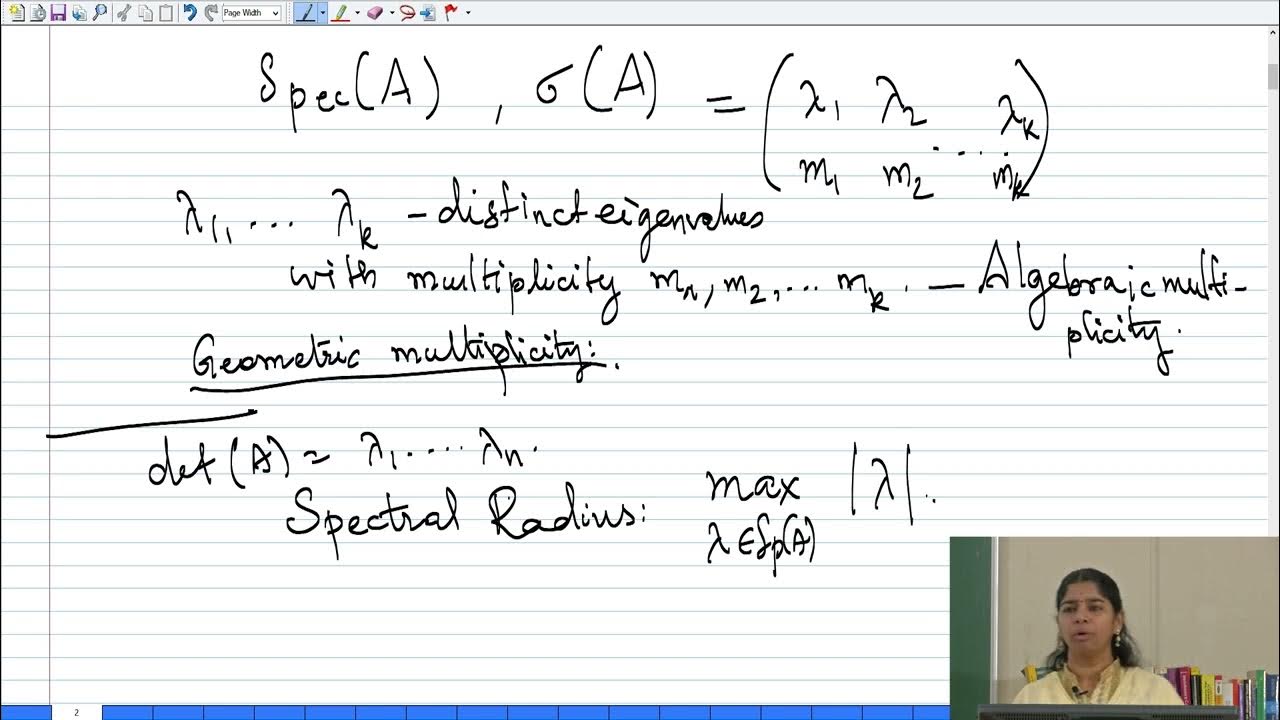 Page Width
Spec(A) , σ(A) = ( λ1 λ2 .... λk
m1 m2 mk )
λ1, ... λk - distinct eigenvalues
with multiplicity mn, m2, ... mk. — Algebraic multi-
plicity.
Geometric multiplicity:.
det(A) = λ1 .... λn.
Spectral Radius: max |λ|.
λ∈Sp(A)
2